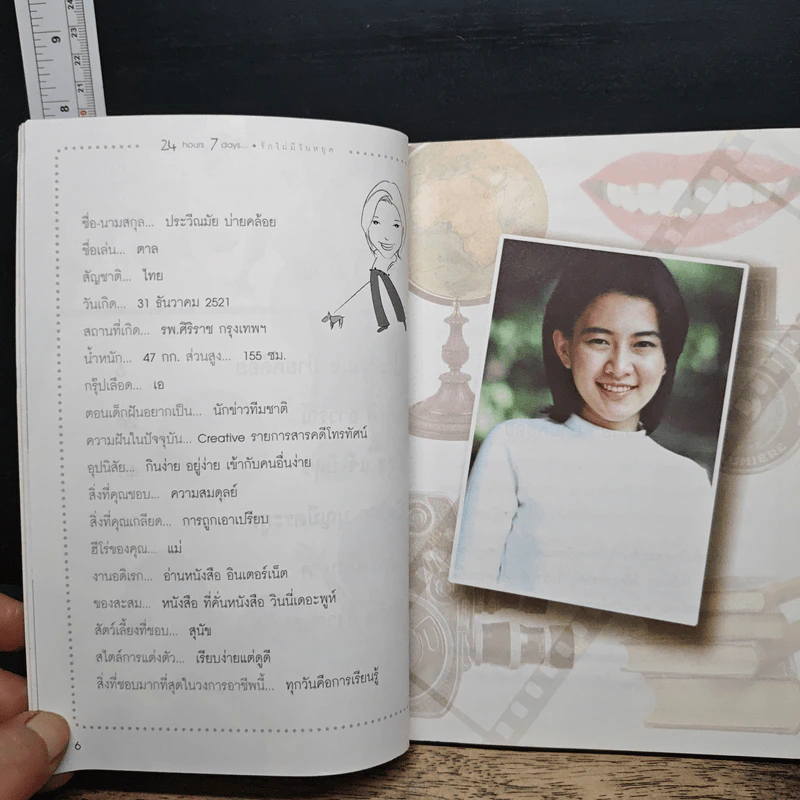 9
8
24
23
22
21
24 hours 7 days... • รักไม่มีวันหยุด
ชื่อ-นามสกุล... ประวีณมัย บ่ายคล้อย
ชื่อเล่น... ตาล
สัญชาติ... ไทย
วันเกิด... 31 ธันวาคม 2521
สถานที่เกิด... รพ.ศิริราช กรุงเทพฯ
น้ำหนัก... 47 กก. ส่วนสูง... 155 ซม.
กรุ๊ปเลือด... เอ
ตอนเด็กฝันอยากเป็น... นักข่าวทีมชาติ
ความฝันในปัจจุบัน... Creative รายการสารคดีโทรทัศน์
อุปนิสัย... กินง่าย อยู่ง่าย เข้ากับคนอื่นง่าย
สิ่งที่คุณชอบ... ความสมดุลย์
สิ่งที่คุณเกลียด... การถูกเอาเปรียบ
ฮีโร่ของคุณ... แม่
งานอดิเรก... อ่านหนังสือ อินเตอร์เน็ต
ของสะสม... หนังสือ ที่คั่นหนังสือ วินนี่เดอะพูห์
สัตว์เลี้ยงที่ชอบ... สุนัข
สไตล์การแต่งตัว... เรียบง่ายแต่ดูดี
สิ่งที่ชอบมากที่สุดในวงการอาชีพนี้... ทุกวันคือการเรียนรู้
6